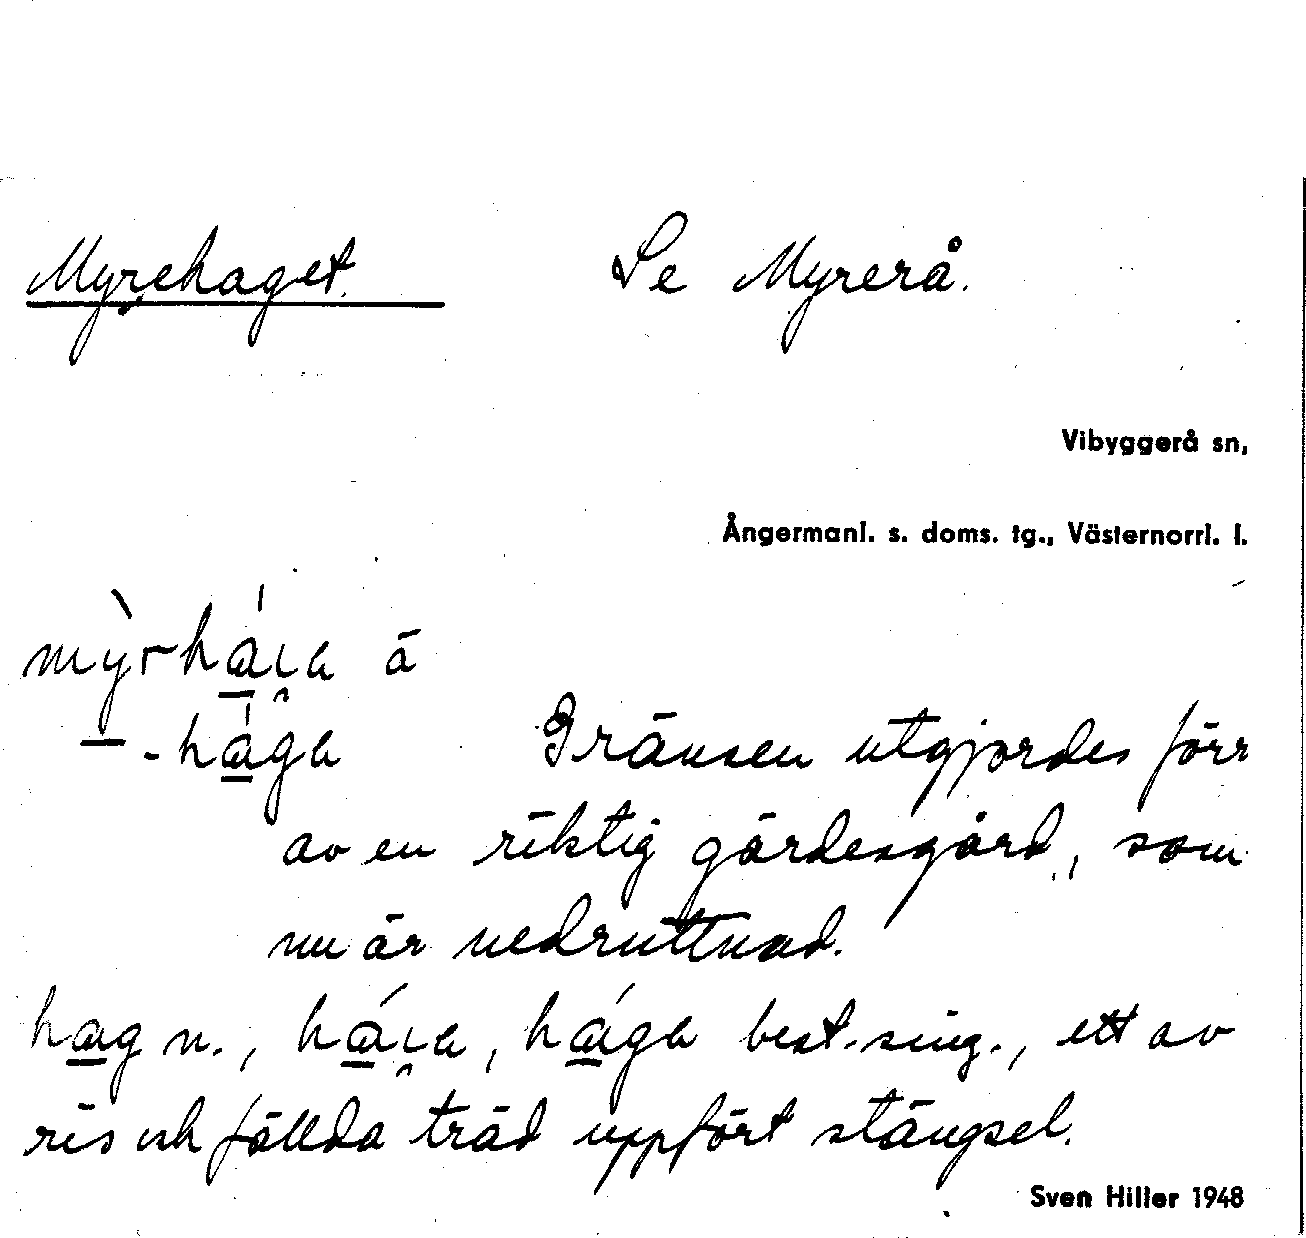 Myrehaget. Se Myrerå.
Vibyggerå sn,
Ångermanl. s. doms. tg., Västernorrl. l.
mỳrháɩa ä
-hága Gränsen utgjordes förr
av en riktig gärdesgård, som
nu är nedruttnad.
hag n., háɩa, hága best. sing., ett av
ris och fällda träd uppfört stängsel.
Sven Hiller 1948